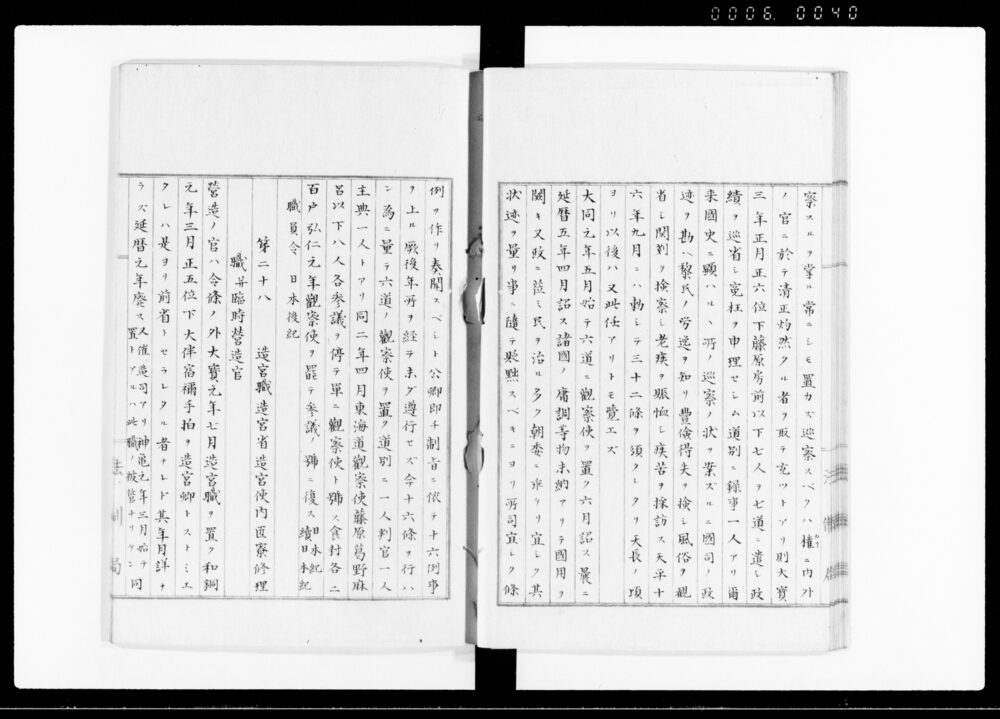 0006 0040
察スルヲ掌ル常ニシモ置カズ巡察スベクハ權ニ内外
ノ官ニ於テ清正灼然タル者ヲ取テ充ツトアリ則大寶
三年正月正六位下藤原房前以下七人ヲ七道ニ遣シ政
績ヲ巡省シ冤枉ヲ申理セシム道別ニ録事一人アリ爾
來國史ニ顯ハルヽ所ノ巡察ノ状ヲ案ズルニ國司ノ政
迹ヲ勘ヘ黎民ノ労逸ヲ知リ豊儉得失ヲ検シ風俗ヲ觀
省シ関剗ヲ検察シ老疾ヲ賑恤シ疾苦ヲ採訪ス天平十
六年九月ニハ勅シテ三十二條ヲ須タレタリ天長ノ頃
ヨリ以後ハ又此任アリトモ覺エズ
大同元年五月始テ六道ニ觀察使ヲ置ク六月詔ス曩ニ
延暦五年四月詔ス諸國ノ庸調等物未納アリテ國用ヲ
闕キ又政ニ莅ミ民ヲ治ル多ク朝委ニ乖ケリ宜シク其
状迹ヲ量リ事ニ隨テ貶黜スベキニヨリ所司宜シク條
例ヲ作リ奏聞スベシト公卿即チ制旨ニ依テ十六條例事
ヲ上ル厥後年所ヲ経テ未ダ遵行セズ今十六條ヲ行ハ
ン為ニ量テ六道ノ觀察使ヲ置ク道別ニ一人判官一人
主典一人トアリ同二年四月東海道觀察使藤原葛野麻
呂以下八人各参議ヲ停テ單ニ觀察使ト號ス食封各二
百戸弘仁元年觀察使ヲ罷テ参議ノ號ニ復ス 日本紀 續日本紀
職員令 日本後紀
第二十八 造宮職造宮省造宮使内匠寮修理
職并臨時營造官
營造ノ官ハ令條ノ外大寶元年七月造宮職ヲ置ク和銅
元年三月正五位下大伴宿禰手拍ヲ造宮卿トストミエ
タレハ是ヨリ前省トセラレタル者ナレド其年月詳ナ
ラズ延暦元年廢ス 又催造司アリ神亀元年三月始テ置トアルハ此職ノ被管ナリケン 同
法制局